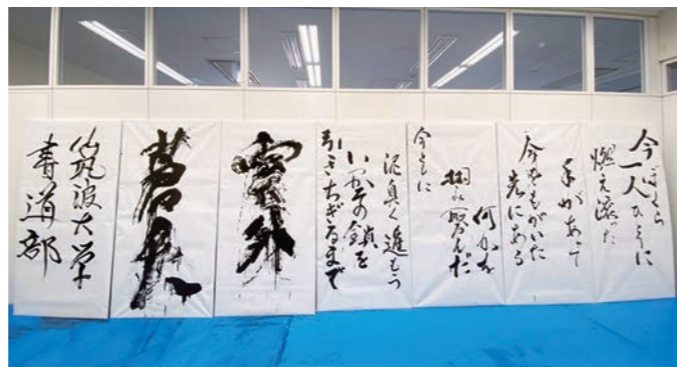 今ぼくら
一人ひとりに
燃え滾った
手があって
今をもがいた
先にある
何かを
掴み取るんだ
今ともに
泥臭く進もう
いつかその鎖を
引きちぎるまで
雲外
蒼天
筑波大学
書道部